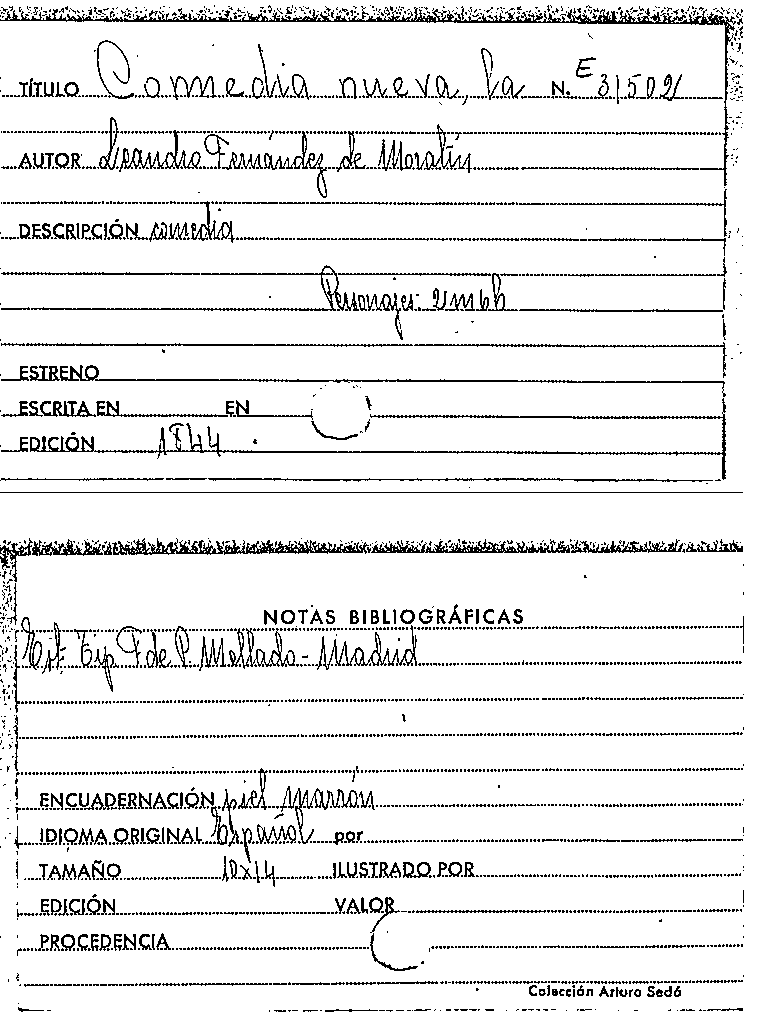 TÍTULO Comedia nueva, la N. E 31502
AUTOR Leandro Fernández de Moratín
DESCRIPCIÓN comedia
Personajes: 2m6h
ESTRENO
ESCRITA EN EN
EDICIÓN 1844
NOTAS BIBLIOGRÁFICAS
Est. Tip F de P. Mellado - Madrid
ENCUADERNACIÓN piel marrón
IDIOMA ORIGINAL Español por
TAMAÑO 10x14 ILUSTRADO POR
EDICIÓN VALOR
PROCEDENCIA
Colección Arturo Sedó